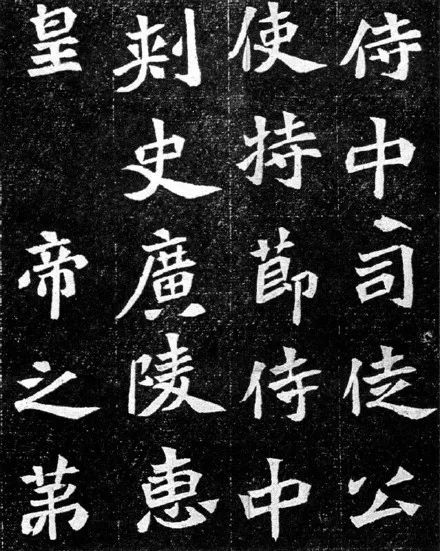 侍中司徒公
使持節侍中
刺史廣陵惠
皇 帝之弟